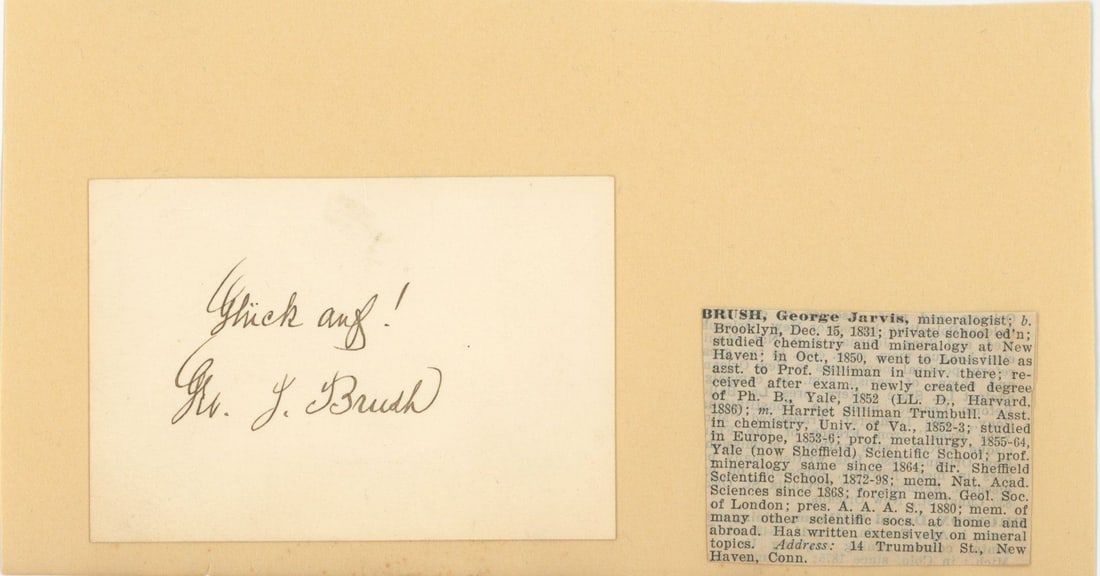 Glück auf!
Geo. J. Brush
BRUSH, George Jarvis, mineralogist; b.
Brooklyn, Dec. 15, 1831; private school ed'n;
studied chemistry and mineralogy at New
Haven; in Oct., 1850, went to Louisville as
asst. to Prof. Silliman in univ. there; re-
ceived after exam., newly created degree
of Ph. B., Yale, 1852 (LL. D., Harvard,
1886); m. Harriet Silliman Trumbull. Asst.
in chemistry, Univ. of Va., 1852-3; studied
in Europe, 1853-6; prof. metallurgy, 1855-64,
Yale (now Sheffield) Scientific School; prof.
mineralogy same since 1864; dir. Sheffield
Scientific School, 1872-98; mem. Nat. Acad.
Sciences since 1868; foreign mem. Geol. Soc.
of London; pres. A. A. A. S., 1880; mem. of
many other scientific socs. at home and
abroad. Has written extensively on mineral
topics. Address: 14 Trumbull St., New
Haven, Conn.